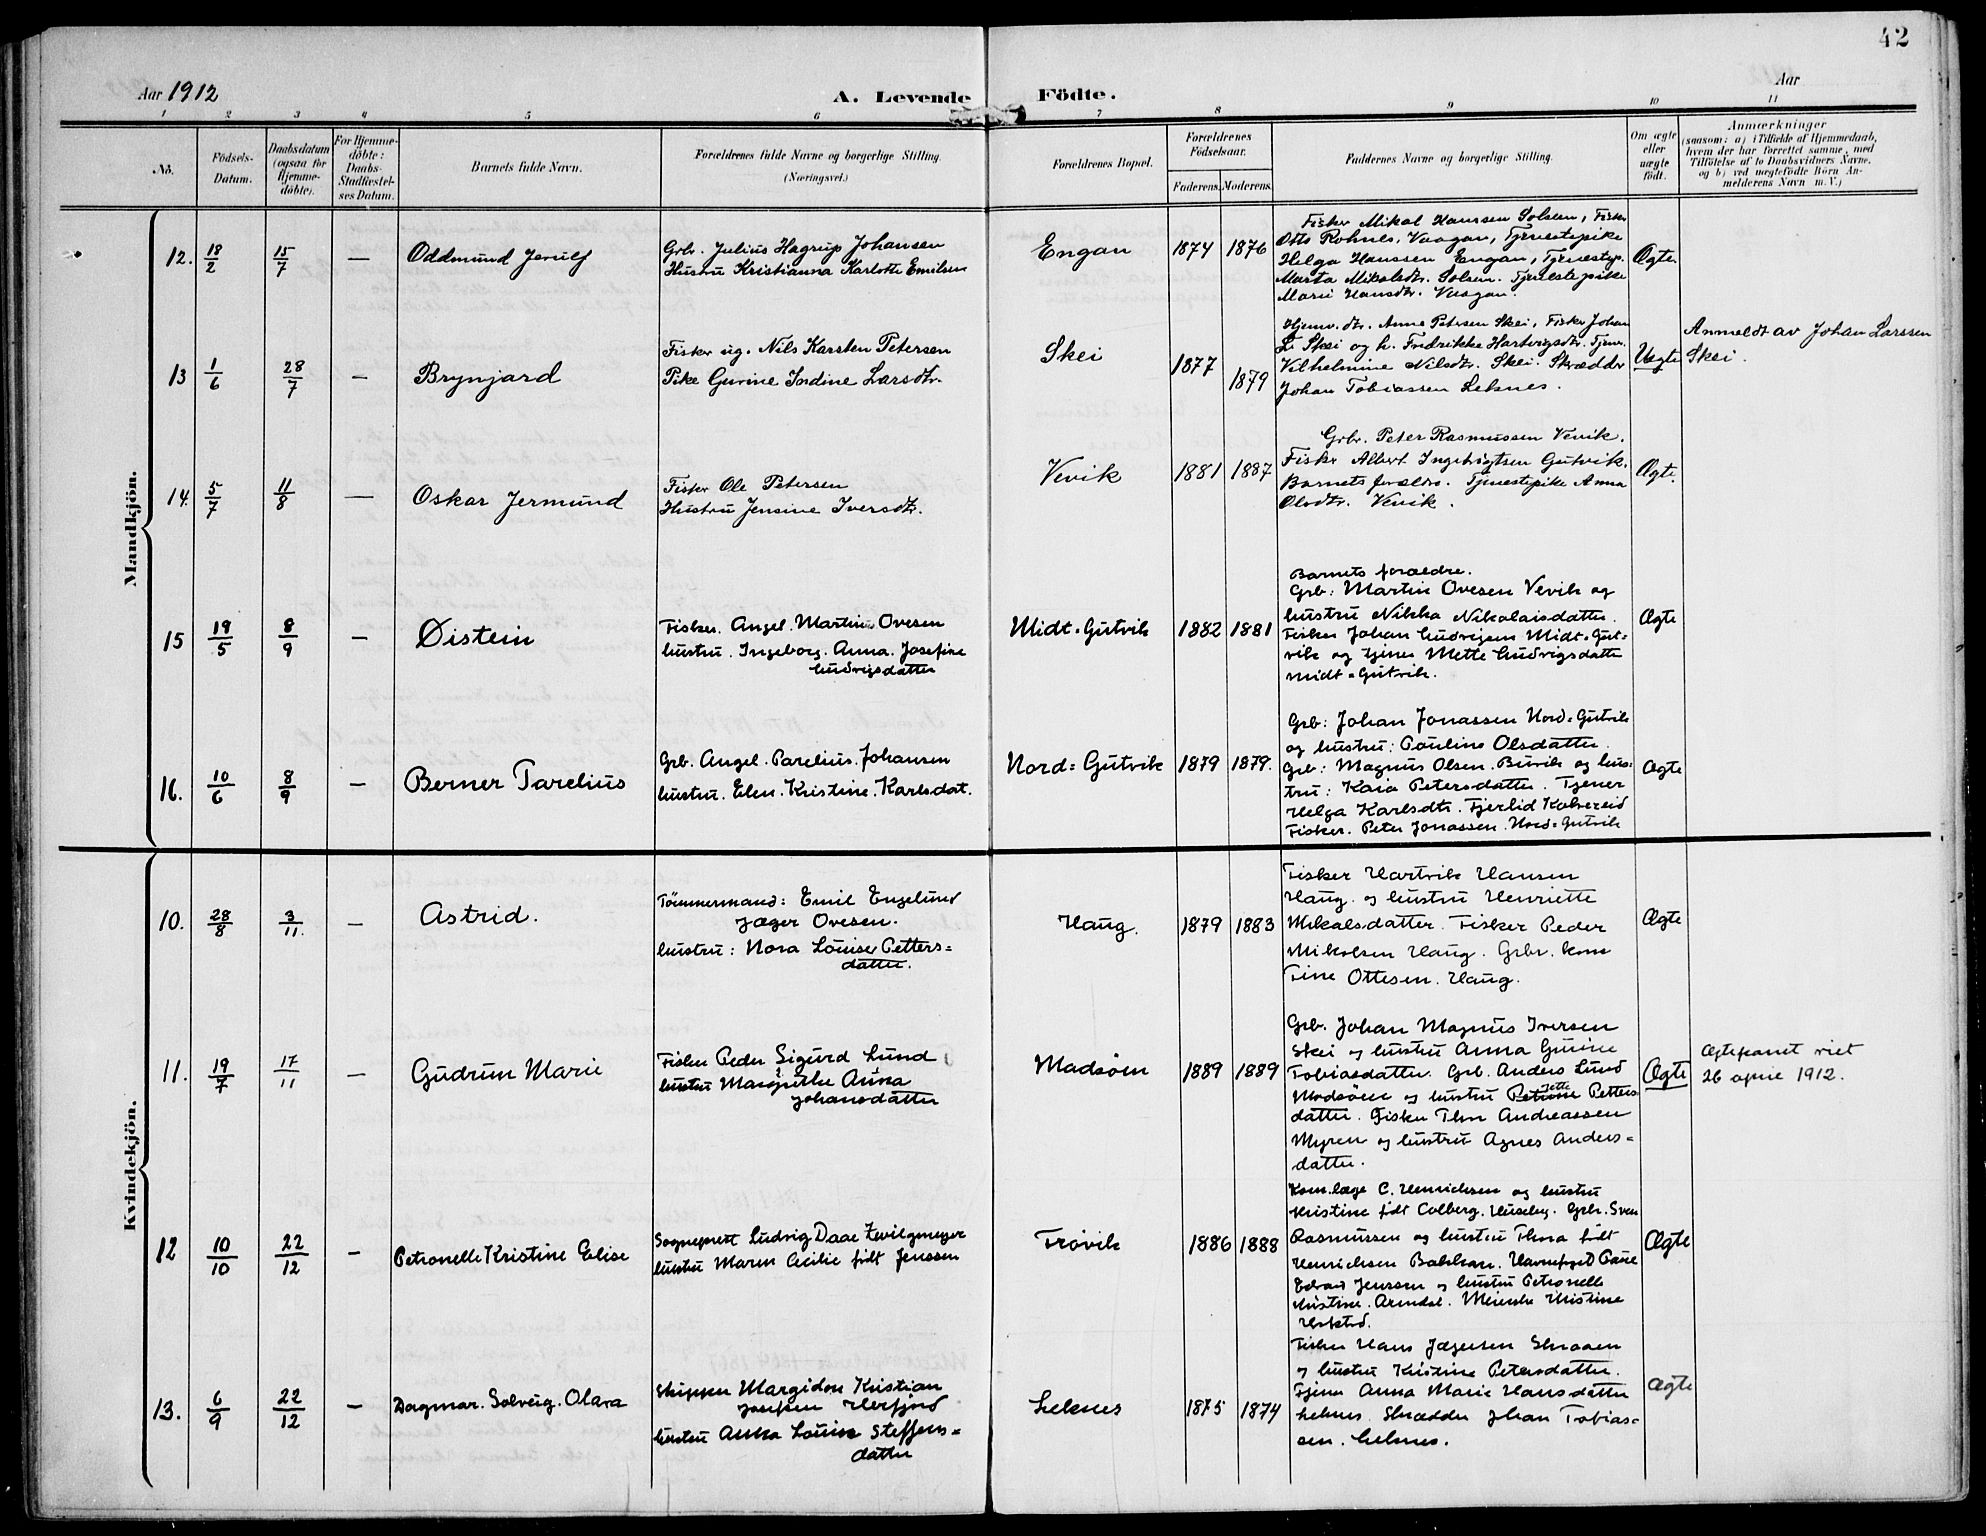 42
Aar 1912
A. Levende Födte.
Aar
1 2 3 4 5 6 7 8 9 10 11
No.
Födsels-Datum.
Daabsdatum (ogsaa for Hjemme-döbte).
For Hjemme-döbte: Daabs-Stadfæstel-ses Datum.
Barnets fulde Navn.
Forældrenes fulde Navne og borgerlige Stilling. (Næringsvei.)
Forældrenes Bopæl.
Forældrenes Födselsaar.
Faderens. Moderens.
Faddernes Navne og borgerlige Stilling.
Om ægte eller uægte födt.
Anmærkninger
(saasom: a) i Tilfælde af Hjemmedaab,
hvem der har forrettet samme, med
Tilföielse af to Daabsvidners Navne,
og b) ved uægtefödte Börn An-
melderens Navn m. V.)
Mandkjön.
12. 18/2 15/7 — Oddmund Jerulf
Grbr. Julius Hagrup Johansen
Hustru Kristianna Karlotte Emilsen
Engan 1874 1876
Fisker Mikal Hanssen Solsem, Fisker
Otto Rohnes, Vaagan, Tjenestepike
Helga Hanssen Engan, Tjenestep.
Marta Mikalsdtr. Solsem. Tjenestepike
Marie Hansdtr. Vaagan.
Ægte
13 1/6 28/7 — Brynjard
Fisker ug. Nils Karsten Petersen
Pike Gurine Indine Larsdtr.
Skei 1877 1879
Hjemv. dtr. Anne Petersen Skei, Fisker Johan
Li Skei og h. Fredrikke Hartvigsdtr. Tjen.
Vilhelmine Nilsdtr. Skei. Skrædder
Johan Tobiassen Leknes.
Uægte
Anmeldt av Johan Larssen
Skei.
14. 5/7 11/8 — Oskar Jermund
Fisker Ole Petersen
Hustru Jensine Iversdtr.
Vevik 1881 1887
Grbr. Peter Rasmussen Vevik.
Fisker Albert Ingebrigtsen Gutvik.
Barnets forældre. Tjenestepike Anna
Olsdtr. Vevik.
Ægte.
15 19/5 8/9 — Øistein
Fisker. Angel. Martinus Ovesen
hustru. Ingeborg. Anna. Josefine
Ludvigsdatter
Midt-Gutvik 1882 1881
Barnets forældre.
Grb: Martin Ovesen Vevik og
hustru Nikka Nikolaisdatter.
Fisker Johan Ludvigsen Midt-Gut-
vik og tjener Mette Ludvigsdatter
Midt-Gutvik.
Ægte
16. 10/6 8/9 — Berner Parelius
Grb. Angel. Parelius. Johansen
hustru. Elen. Kristine. Karlsdat.
Nord=Gutvik 1879 1879.
Grb: Johan Jonassen Nord=Gutvik
og hustru: Pauline Olsdatter
Grb: Magnus Olsen. Burvik og hus-
tru: Kaia Petersdatter. Tjener
Helga Karlsdtr. Fjerlid Kolvereid
Fisker. Peter Jonassen. Nord=Gutvik
Ægte
Kvindekjön.
10. 28/8 3/11. — Astrid.
Tømmermand: Emil Engelund
Jæger Ovesen.
hustru: Nora Louise Petters=
datter.
Haug. 1879 1883
Fisker Hartvik Hansen
Haug. og hustru Henriette
Mikalsdatter. Fisker Peder
Mikalsen Haug. Grbr. kone
Tine Ottesen. Haug.
Ægte
11. 19/7 17/11 — Gudrun Marie
Fisker Peder Sigurd Lund
hustru Margrethe Anna
Johansdatter
Madsøen 1889 1889
Grb. Johan Magnus Iversen
Skei og hustru Anna Gurine
Tobiasdatter. Grb. Anders Lund
Madsøen og hustru Petrine Petters
datter. Fisker Thor Andreassen
Myren og hustru Agnes Anders=
datter.
Ægte
Ægteparret viet
26 april 1912.
12 10/10 22/12 — Petronelle Kristine Elise
Sogneprest Ludvig Daae Zwilgmeyer
hustru Maren Cecilie født Jenssen
Trøvik 1886 1888
Kom.læge C. Henrichsen og hustru
Kristine født Colberg. Huseby. Grbr. Sven
Rasmussen og hustru Thea født
Henrichsen Bakkan. Havnefoged
Edvard Jenssen og hustru Petronelle
Kristine. Arendal. Kristine
Ægte
13. 6/9 22/12 — Dagmar. Solveig. Olara
Skipper Margidon Kristian
Josefsen Herfjord
hustru Anna Louise Steffens=
datter
Leknes 1875 1874
Fisker Hans Jægersen Skraaen
og hustru Kristine Petersdatter.
Tjener Anna Marie Hansdatter
Leknes. Skrædder Johan Tobias=
sen. Leknes.
Ægte